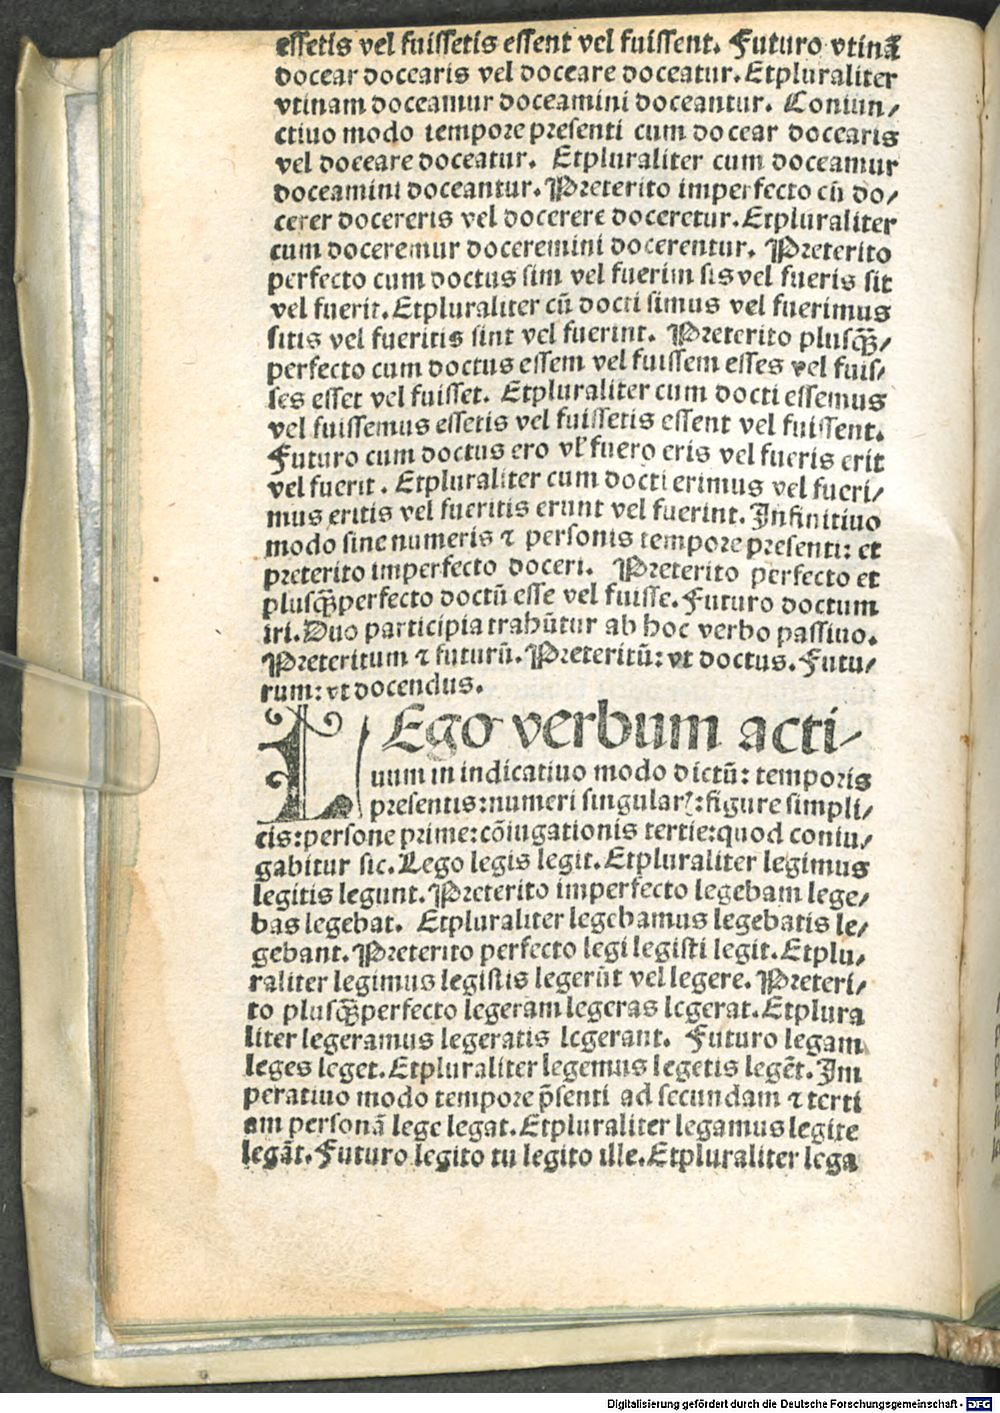 essetis vel fuissetis essent vel fuissent. Futuro vtinã
docear docearis vel doceare doceatur. Etpluraliter
vtinam doceamur doceamini doceantur. Coniun/
ctiuo modo tempore presenti cum docear docearis
vel doceare doceatur. Etpluraliter cum doceamur
doceamini doceantur. Preterito imperfecto cũ do/
cerer docereris vel docerere doceretur. Etpluraliter
cum doceremur doceremini docerentur. Preterito
perfecto cum doctus sim vel fuerim sis vel fueris sit
vel fuerit. Etpluraliter cũ docti simus vel fuerimus
sitis vel fueritis sint vel fuerint. Preterito plusqꝫ/
perfecto cum doctus essem vel fuissem esses vel fuis/
ses esset vel fuisset. Etpluraliter cum docti essemus
vel fuissemus essetis vel fuissetis essent vel fuissent.
Futuro cum doctus ero vl' fuero eris vel fueris erit
vel fuerit. Etpluraliter cum docti erimus vel fueri/
mus eritis vel fueritis erunt vel fuerint. Infinitiuo
modo sine numeris ⁊ personis tempore presenti: et
preterito imperfecto doceri. Preterito perfecto et
plusqꝫperfecto doctũ esse vel fuisse. Futuro doctum
iri. Duo participia trahũtur ab hoc verbo passiuo.
Preteritum ⁊ futurũ. Preteritũ: vt doctus. Futu/
rum: vt docendus.
LEgo verbum acti/
uum in indicatiuo modo dictũ: temporis
presentis: numeri singularꝭ: figure simpli/
cis: persone prime: cõiugationis tertie: quod coniu/
gabitur sic. Lego legis legit. Etpluraliter legimus
legitis legunt. Preterito imperfecto legebam lege/
bas legebat. Etpluraliter legebamus legebatis le/
gebant. Preterito perfecto legi legisti legit. Etplu/
raliter legimus legistis legerũt vel legere. Preteri/
to plusqꝫperfecto legeram legeras legerat. Etplura
liter legeramus legeratis legerant. Futuro legam
leges leget. Etpluraliter legemus legetis legẽt. Im
peratiuo modo tempore p̃senti ad secundam ⁊ terti
am personã lege legat. Etpluraliter legamus legite
legãt. Futuro legito tu legito ille. Etpluraliter lega
Digitalisierung gefördert durch die Deutsche Forschungsgemeinschaft - DFG